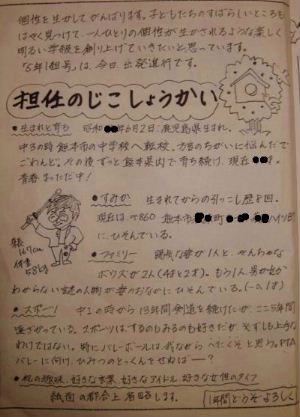 個性を生かしてがんばります。子どもたちのすばらしいところを
はやく見つけて、一人ひとりの個性が生かされるような楽しく
明るい学級を創り上げていきたいと思っています。
「5年1組号」は、今日出発進行です。
担任のじこしょうかい
●生まれと育ち 昭和 年6月2日、鹿児島県生まれ。
中3の時熊本市の中学校へ転校。方言のちがいに悩んだで
ごわんど。その後ずっと熊本県内で育ち続け、現在 才。
青春まっただ中!
●すみか 生まれてからの引っこし歴8回。
現在は、〒860 熊本市 町 ハイツ
にひそんでいる。
身長
167cm
体重
58kg
●ファミリー 陽気な妻が1人と、やんちゃな
ボウズが2人(4才と2才)。もう1人、男か女か
わからない謎の人物が妻のおなかにひそんでいる。
●スポーツ 中1の時から13年間剣道を続けたが、ここ5年間
遠ざかっている。スポーツは、するのもみるのも好きだが、必ずしも上手な
わけではない。特にバレーボールは、われながらへたくそと思う。PTA
バレーに向け、ひみつのとっくんをせねばー?
●私の趣味、好きな言葉、好きなアイドル、好きな女性のタイプ
紙面の都合上省略します。
1年間どうぞよろしく